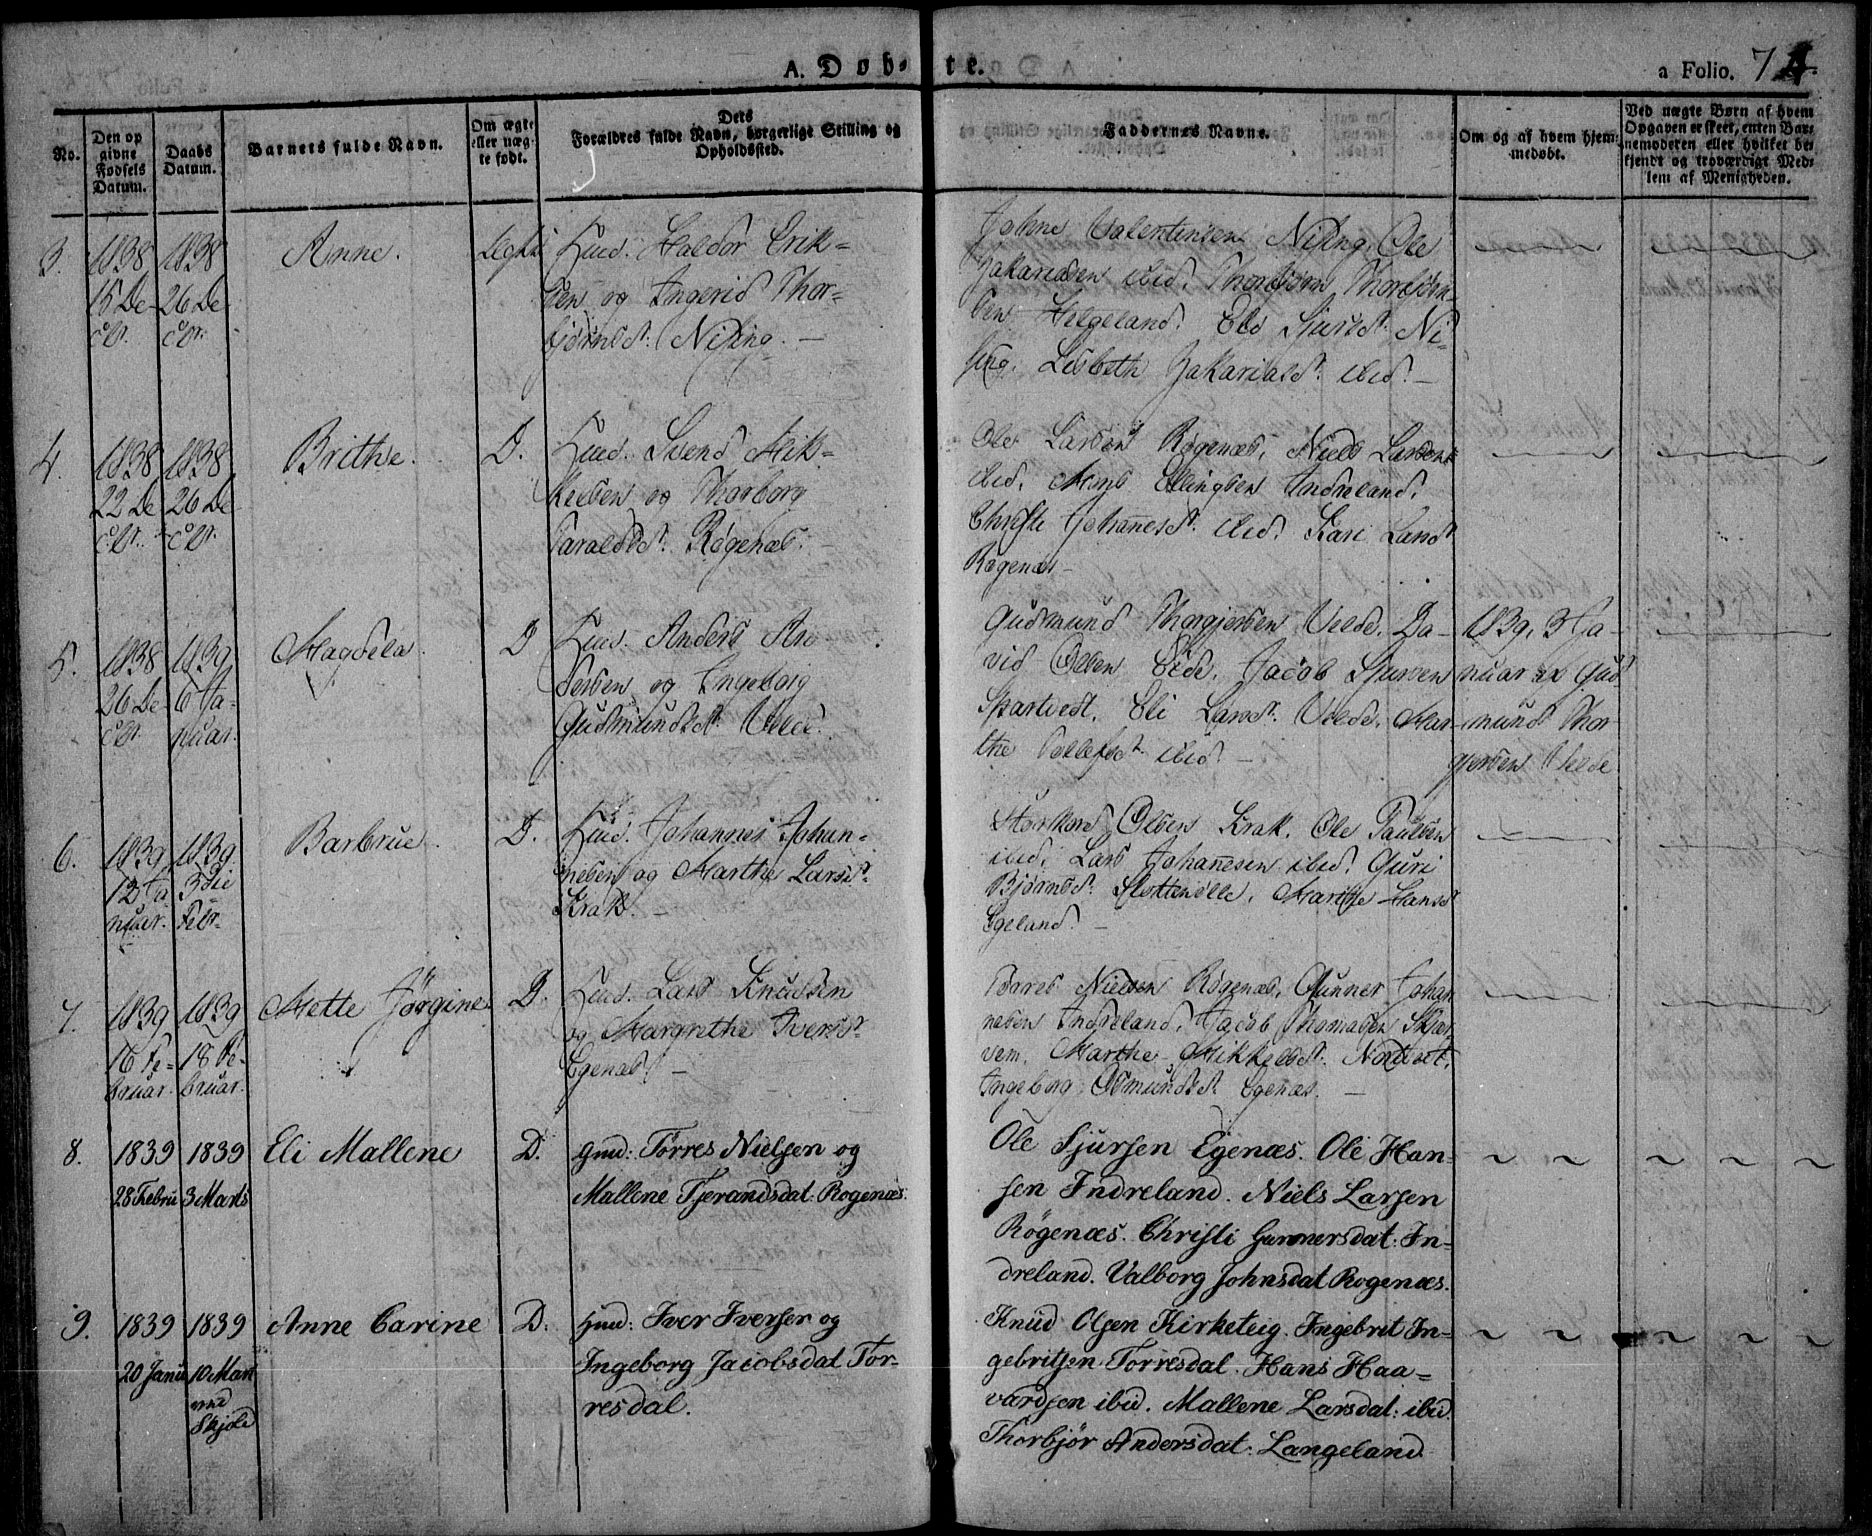 A. Døb-te.
a Folio. 74
No.
Den op
givne
Fødsels
Datum.
Daabs
Datum.
Barnets fulde Navn.
Om ægte
eller uæg-
te født.
Dets
Forældres fulde Navn, borgerlige Stilling og
Opholdssted.
Faddernes Navne.
Om og af hvem hjem-
medøbt.
Ved uægte Børn af hvem
Opgaven er skeet, enten Bar-
nemoderen eller hvilket be-
kjendt og troværdigt Med-
lem af Menigheden.
3.
1838
15 De-
cbr.
1838
26 De-
cbr.
Anne.
Huus. Haldor Erik-
sen og Ingerid Thor-
bjørnsdt. Nising. —
Johne Valentinsen Nising. Ole
Zakariasen ibid. Thorbjørn Thorbjørn-
sen Helgeland. Eli Sjursdt. Ni-
sing. Lisbeth Zakariasdt. ibid. —
4.
1838
22 De-
cbr.
1838
26 De-
cbr.
Brithe.
D.
Huus. Svend Mik-
kelsen og Thorborg
Taraldsdt. Røgenæs. —
Ole Larsen Røgenæs, Niels Larsen
ibid. Mons Ellingsen Indreland.
Christi Johannesdt. ibid. Kari Larsdt
Røgenæs —
5.
1838
26 De-
cbr.
1839
6 Ja-
nuar.
Magdela.
D
Huus. Anders An-
dersen og Ingeborg
Gudmundsdt. Velde.
Gudmund Thorgjersen Velde. Da-
vid Olsen Eide. Jacob Sjursen
Skartvedt. Eli Larsdt. Velde. Mar-
the Tollefsdt. ibid. —
1839, 3 Ja-
nuar af Gud-
mund Thor-
gjersen Velde
6.
1839
12 Ja-
nuar.
1839
3die
Febr.
Barbrue.
D.
Huus. Johannes Johan-
nesen og Marthe Larsdt.
Krak. —
Storkor Olsen Krak. Ole Paulsen
ibid. Lars Johannesen ibid. Guri
Bjørnsdt. Marthe Hansdt
Egeland. —
7.
1839
16 Fe-
bruar.
1839
18 Fe-
bruar.
Mette Jørgine.
D.
Huus. Lars Knudsen
og Margrethe Iversdt.
Egenæs —
Baard Nielsen Røgenæs, Gunner Johan-
nesen Indreland. Jacob Thomasen Skjær-
vem. Marthe Mikkelsdt. Nordtvet.
Ingeborg Osmundsdt. Egenæs. —
8.
1839
28 Febru
1839
3 Marts
Eli Mallene
D.
Gmd: Torres Nielsen og
Mallene Tjerandsdat: Rogenæs.
Ole Sjursen Egenæs. Ole Han-
sen Indreland. Niels Larsen
Røgenæs. Christi Gunnersdat: In-
dreland. Valborg Johnsdat Rogenæs.
9.
1839
20 Janu
1839
10 Mart
ved
Skjold
Anne Carine
D.
Hmd: Iver Iversen og
Ingeborg Jacobsdat Tor-
resdal.
Knud Olsen Kirketeig. Ingebret In-
gebritsen Torresdal. Hans Haa-
vardsen ibid. Mallene Larsdat: ibid.
Thorbjør Andersdat: Langeland